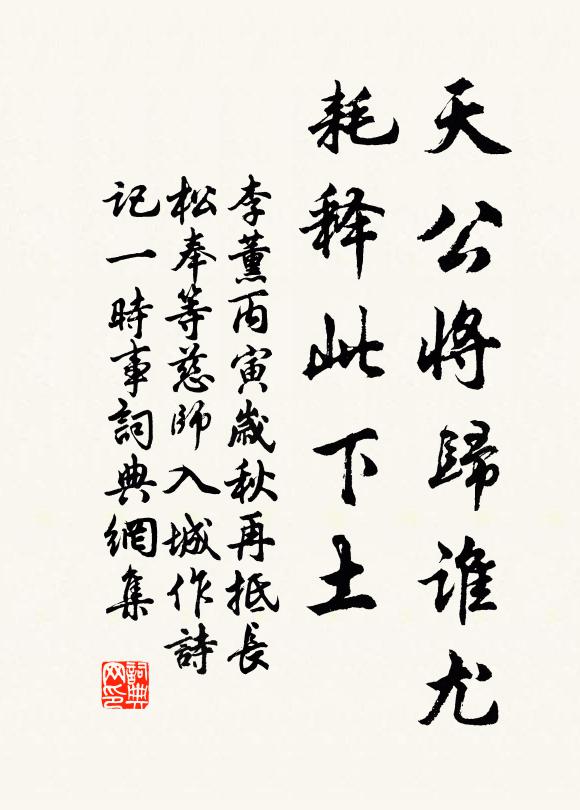 天公将歸谁尤
耗释此下土
李薰丙寅歲秋再抵長
松奉等慈師入城作詩
记一時事詞典網集
詞典
网印